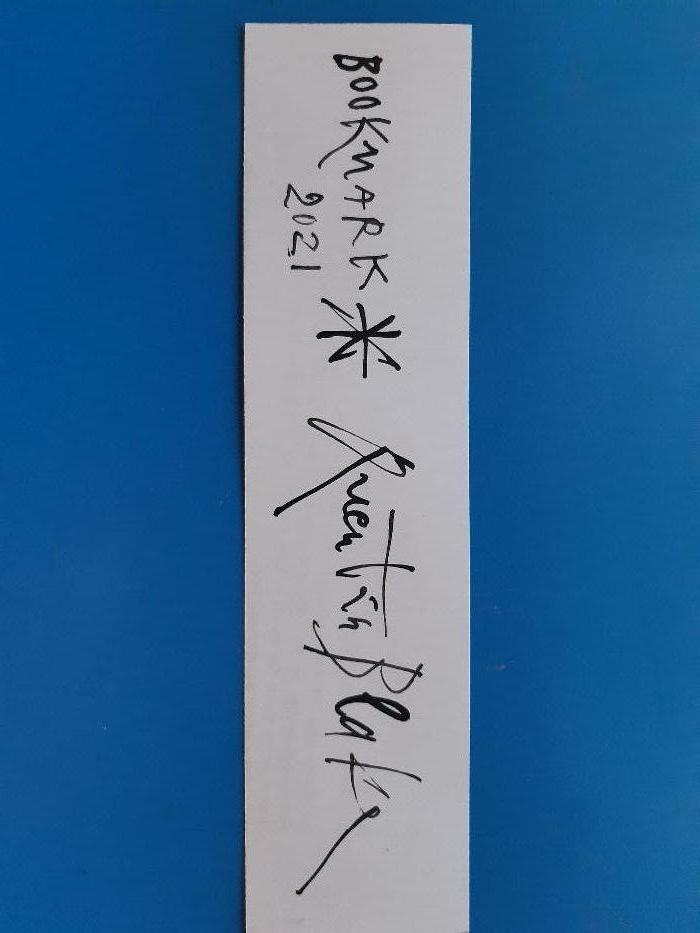 BOOKMARK * Quentin Blake
2021